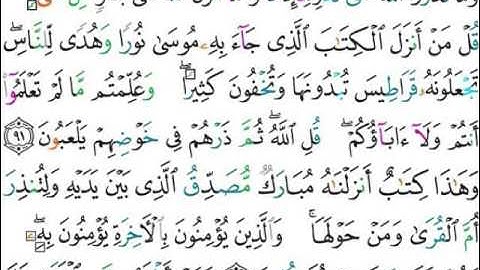 قُلْ مَنْ أَنزَلَ الْكِتَابَ الَّذِي جَآءَ بِهِۦ مُوسَىٰ نُورًا وَهُدًى لِّلنَّاسِ ۖ
تَجْعَلُونَهُۥ قَرَاطِيسَ تُبْدُونَهَا وَتُخْفُونَ كَثِيرًا ۖ وَعُلِّمْتُم مَّا لَمْ تَعْلَمُوٓا۟
أَنتُمْ وَلَآ ءَابَآؤُكُمْ ۖ قُلِ اللَّهُ ۖ ثُمَّ ذَرْهُمْ فِي خَوْضِهِمْ يَلْعَبُونَ ﴿٩١﴾
وَهَٰذَا كِتَٰبٌ أَنزَلْنَٰهُ مُبَارَكٌ مُّصَدِّقُ الَّذِي بَيْنَ يَدَيْهِ وَلِتُنذِرَ
أُمَّ الْقُرَىٰ وَمَنْ حَوْلَهَا ۚ وَالَّذِينَ يُؤْمِنُونَ بِالْءَاخِرَةِ يُؤْمِنُونَ بِهِۦ ۖ